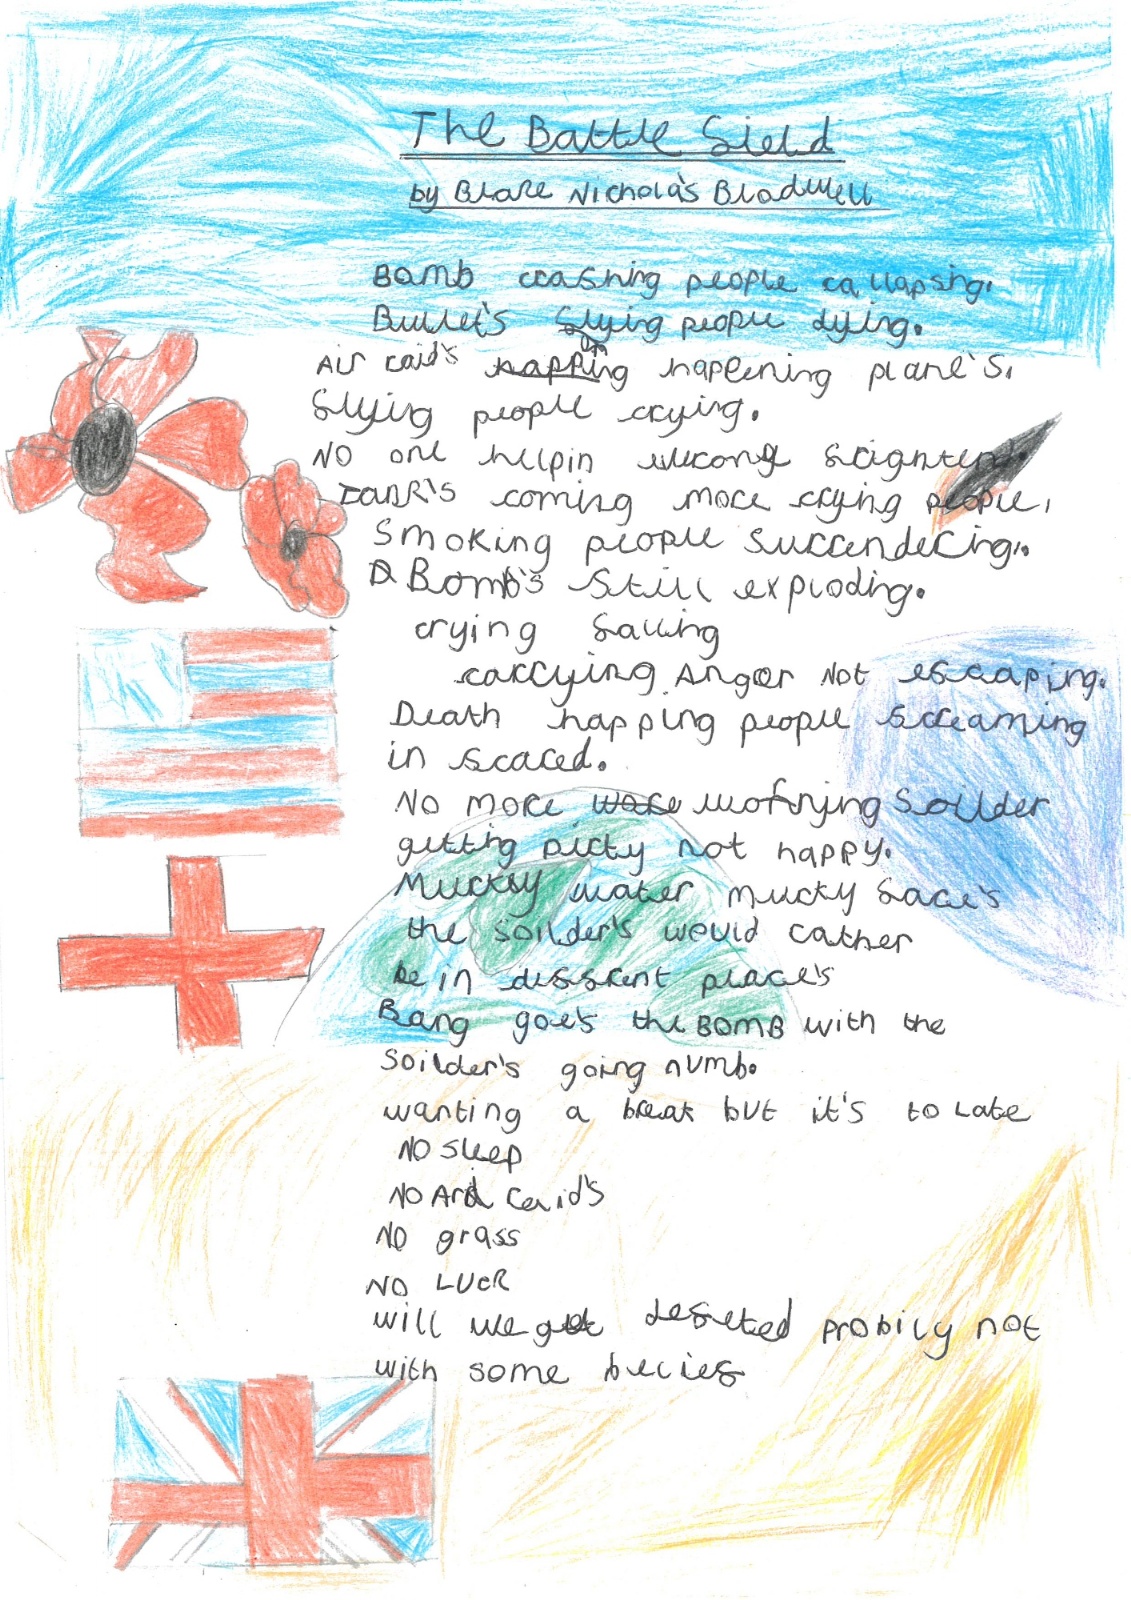 The Battle field
by Blake Nichola's Bladwell
Bomb crashing people callapsing.
Bullet's flying people dying.
Air raid's happing happening plane's.
flying people crying.
NO one helpin wrong frighten.
Tank's coming more crying people.
Smoking people surrendering.
Bomb's still exploding.
crying falling
carrying Anger Not escaping.
Death happing people screaming
in scared.
No more worrying soilder
getting picty not happy.
Mucky water mucky face's
the soilder's would rather
be in diffrent place's
Bang goes the BOMB with the
soilder's going numb.
wanting a break but it's to late
NO sleep
NO raid's
NO grass
NO LUCK
will we get defeted probily not
with some belief